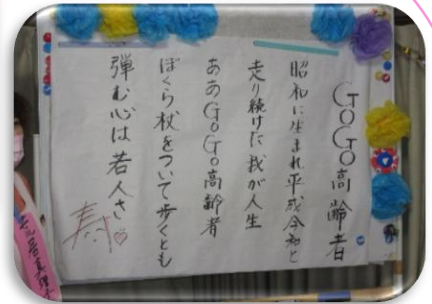 GOGO高齢者
昭和に生まれ平成令和と
走り続けた我が人生
ああGOGO高齢者
ぼくら杖をついて歩くとも
弾む心は若人さ
寿